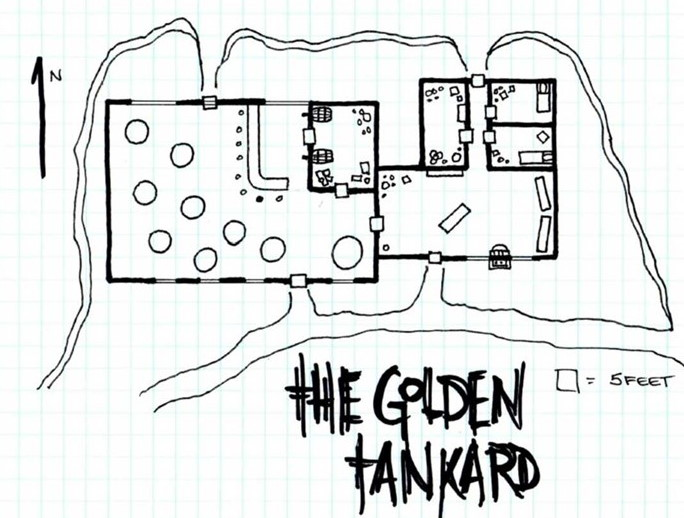 N
THE GOLDEN
TANKARD
= 5 FEET